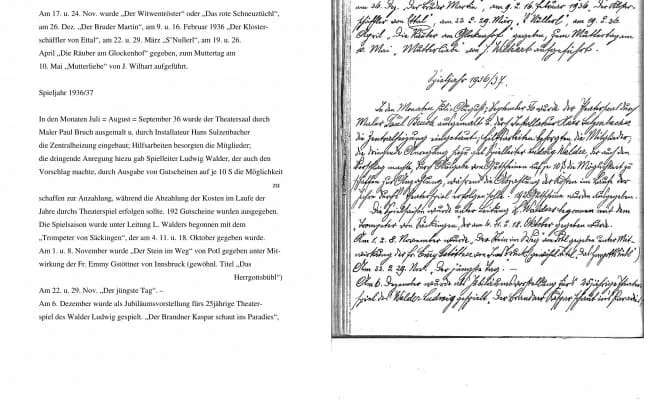 Am 17. u. 24. Nov. wurde „Der Witwentröster“ oder „Das rote Schneuztüchl“,
am 26. Dez. „Der Bruder Martin“, am 9. u. 16. Februar 1936 „Der Kloster-
schäffler von Ettal“, am 22. u. 29. März „S“Nullerl“, am 19. u. 26.
April „Die Räuber am Glockenhof“ gegeben, zum Muttertag am
10. Mai „Mutterliebe“ von J. Wilhart aufgeführt.
Spieljahr 1936/37
In den Monaten Juli = August = September 36 wurde der Theatersaal durch
Maler Paul Bruch ausgemalt u. durch Installateur Hans Sulzenbacher
die Zentralheizung eingebaut; Hilfsarbeiten besorgten die Mitglieder;
die dringende Anregung hiezu gab Spielleiter Ludwig Walder, der auch den
Vorschlag machte, durch Ausgabe von Gutscheinen auf je 10 S die Möglichkeit
zu
schaffen zur Anzahlung, während die Abzahlung der Kosten im Laufe der
Jahre durchs Theaterspiel erfolgen sollte. 192 Gutscheine wurden ausgegeben.
Die Spielsaison wurde unter Leitung L. Walders begonnen mit dem
„Trompeter von Säckingen“, der am 4. 11. u. 18. Oktober gegeben wurde.
Am 1. u. 8. November wurde „Der Stein im Weg“ von Potl gegeben unter Mit-
wirkung der Fr. Emmy Gstöttner von Innsbruck (gewöhnl. Titel „Das
Herrgottsbübl“)
Am 22. u. 29. Nov. „Der jüngste Tag“. –
Am 6. Dezember wurde als Jubiläumsvorstellung fürs 25jährige Theater-
spiel des Walder Ludwig gespielt. „Der Brandner Kaspar schaut ins Paradies“,
am 26. Dez. „Der Bruder Martin“, am 9. u. 16. Februar 1936, Der Kloster-
schäffler von Ettal“, am 22. u 29. März, „S'Nullerl“, am 19. u. 26.
April „Die Räuber am Glockenhof“ gegeben, zum Muttertag am
10. Mai „Mutterliebe“ J. Wilhart aufgeführt.
Spieljahr 1936/37.
In den Monaten Juli = August = September 36 wurde der Theatersaal durch
Maler Paul Bruch ausgemalt u. durch Installateur Hans Sulzenbacher
die Zentralheizung eingebaut; Hilfsarbeiten besorgten die Mitglieder;
die dringende Anregung hiezu gab Spielleiter Ludwig Walder, der auch den
Vorschlag machte, durch Ausgabe von Gutscheinen auf je 10 S die Möglichkeit zu
schaffen zur Anzahlung, während die Abzahlung der Kosten im Laufe der
Jahre durchs Theaterspiel erfolgen sollte. 192 Gutscheine wurden ausgegeben.
Die Spielsaison wurde unter Leitung L. Walders begonnen mit dem
Trompeter von Säckingen, der am 4. 11. u. 18. Oktober gegeben wurde.
Am 1. u. 8. November wurde „Der Stein im Weg“ von Potl gegeben unter Mit-
wirkung der Fr. Emmy Gstöttner von Innsbruck (gewöhnl. Titel „Das Herrgottsbübl“)
Am 22. u. 29. Nov. „Der jüngste Tag. –
Am 6. Dezember wurde als Jubiläumsvorstellung fürs 25jährige Theater-
spiel des Walder Ludwig gespielt. „Der Brandner Kaspar schaut ins Paradies“,